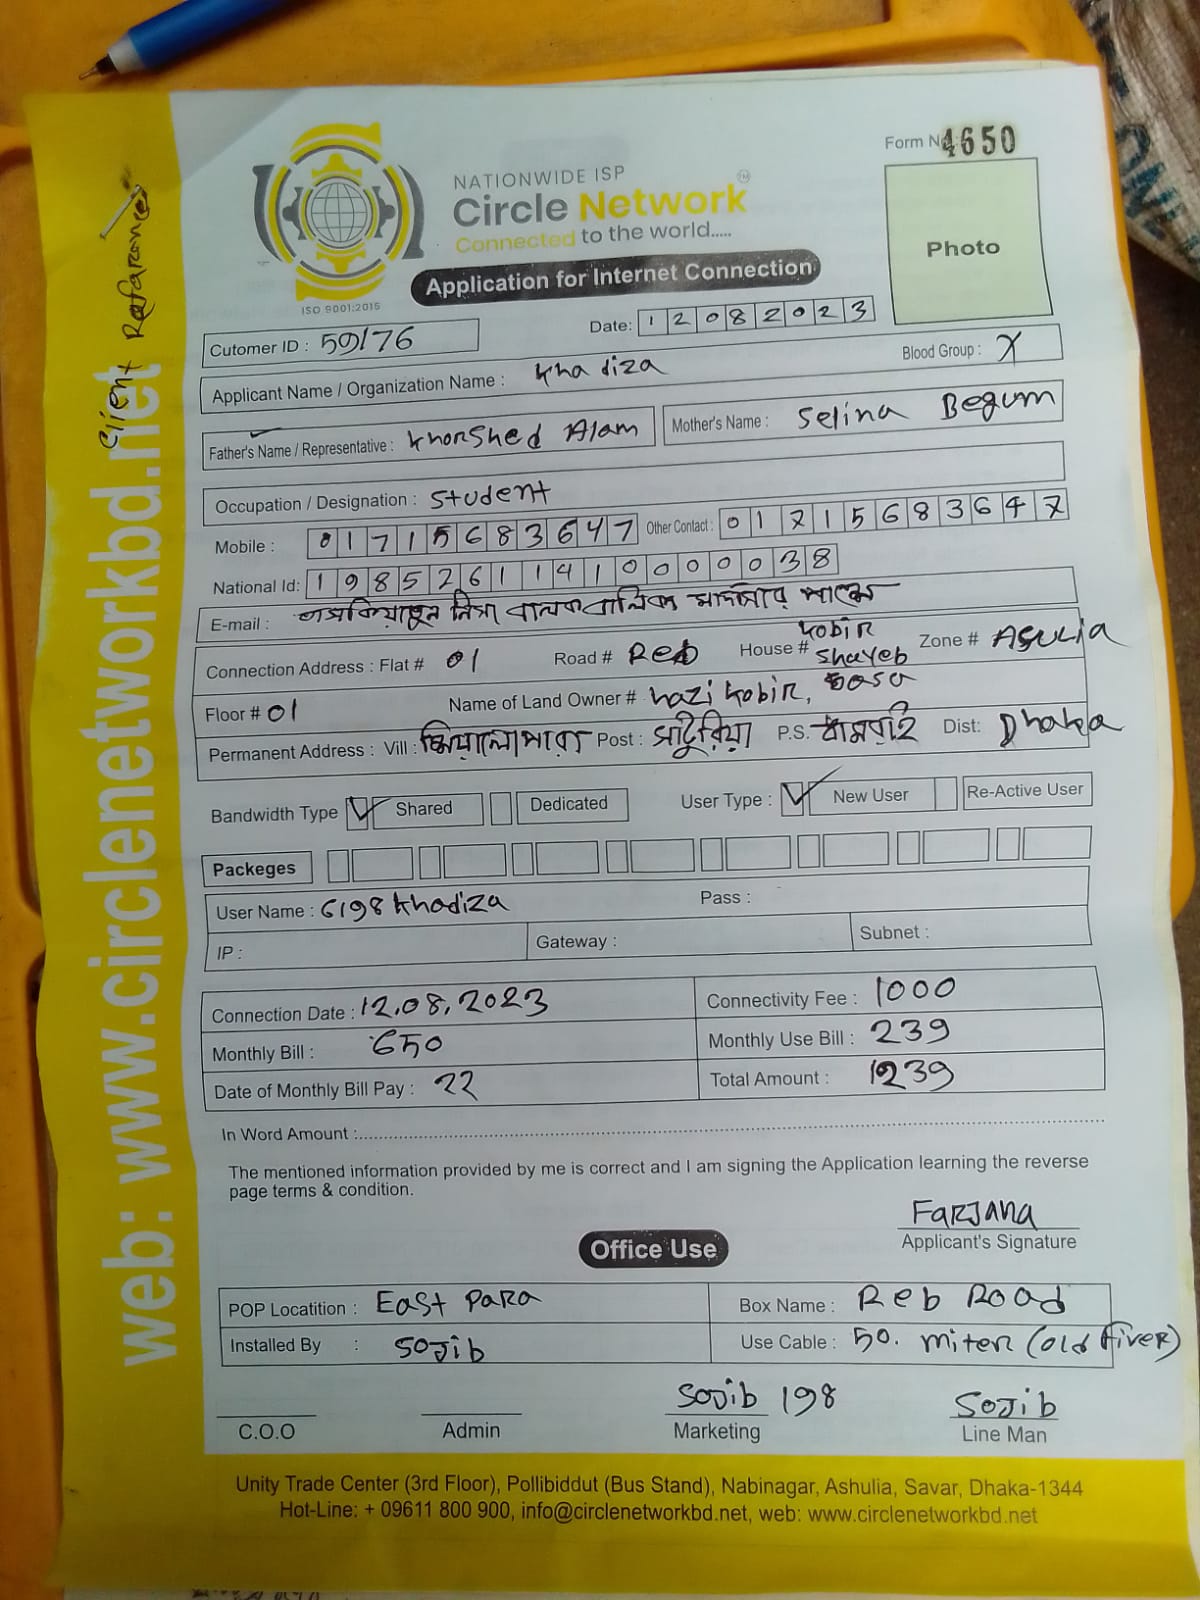 Form No 4650
NATIONWIDE ISP
Circle Network TM
Connected to the world.....
Application for Internet Connection
ISO 9001:2015
Photo
Client Refarance
web: www.circlenetworkbd.net
Cutomer ID : 59176
Date: 12082023
Applicant Name / Organization Name : Khadiza
Blood Group : X
Father's Name / Representative : Khorshed Alam
Mother's Name : Selina Begum
Occupation / Designation : Student
Mobile : 01715683647 Other Contact : 01715683647
National Id: 19852611410000038
E-mail : বালক বালিকা মাদ্রাসার পাশে
Connection Address : Flat # 01 Road # Reb House # Kobir Shayeb Basa Zone # Asulia
Floor # 01 Name of Land Owner # Hazi Kobir,
Permanent Address : Vill : Post : সাটুরিয়া P.S. ধামরাই Dist: Dhaka
Bandwidth Type Shared Dedicated User Type : New User Re-Active User
Packeges
User Name : 6198 Khadiza Pass :
IP : Gateway : Subnet :
Connection Date : 12.08.2023 Connectivity Fee : 1000
Monthly Bill : 650 Monthly Use Bill : 239
Date of Monthly Bill Pay : 22 Total Amount : 1239
In Word Amount :
The mentioned information provided by me is correct and I am signing the Application learning the reverse
page terms & condition.
Farjana
Applicant's Signature
Office Use
POP Locatition : East Para Box Name : Reb Road
Installed By : Sojib Use Cable : 50. miter (old fiver)
Sojib 198 Sojib
C.O.O Admin Marketing Line Man
Unity Trade Center (3rd Floor), Pollibiddut (Bus Stand), Nabinagar, Ashulia, Savar, Dhaka-1344
Hot-Line: + 09611 800 900, info@circlenetworkbd.net, web: www.circlenetworkbd.net